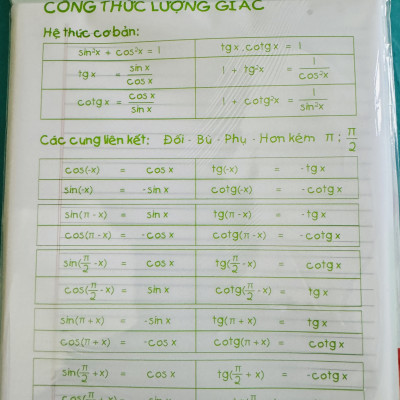 CÔNG THỨC LƯỢNG GIÁC
Hệ thức cơ bản:
sin²x + cos²x = 1    tgx.cotgx = 1
tgx = sin x / cos x    1 + tg²x = 1 / cos²x
cotgx = cos x / sin x    1 + cotg²x = 1 / sin²x
Các cung liên kết: Đối - Bù - Phụ - Hơn kém π ; π/2
cos(-x) = cos x    tg(-x) = -tgx
sin(-x) = -sin x    cotg(-x) = -cotgx
sin(π - x) = sin x    tg(π - x) = -tgx
cos(π - x) = -cos x    cotg(π - x) = -cotgx
sin(π/2 - x) = cos x    tg(π/2 - x) = cotgx
cos(π/2 - x) = sin x    cotg(π/2 - x) = tgx
sin(π + x) = -sin x    tg(π + x) = tgx
cos(π + x) = -cos x    cotg(π + x) = cotgx
sin(π/2 + x) = cos x    tg(π/2 + x) = -cotgx